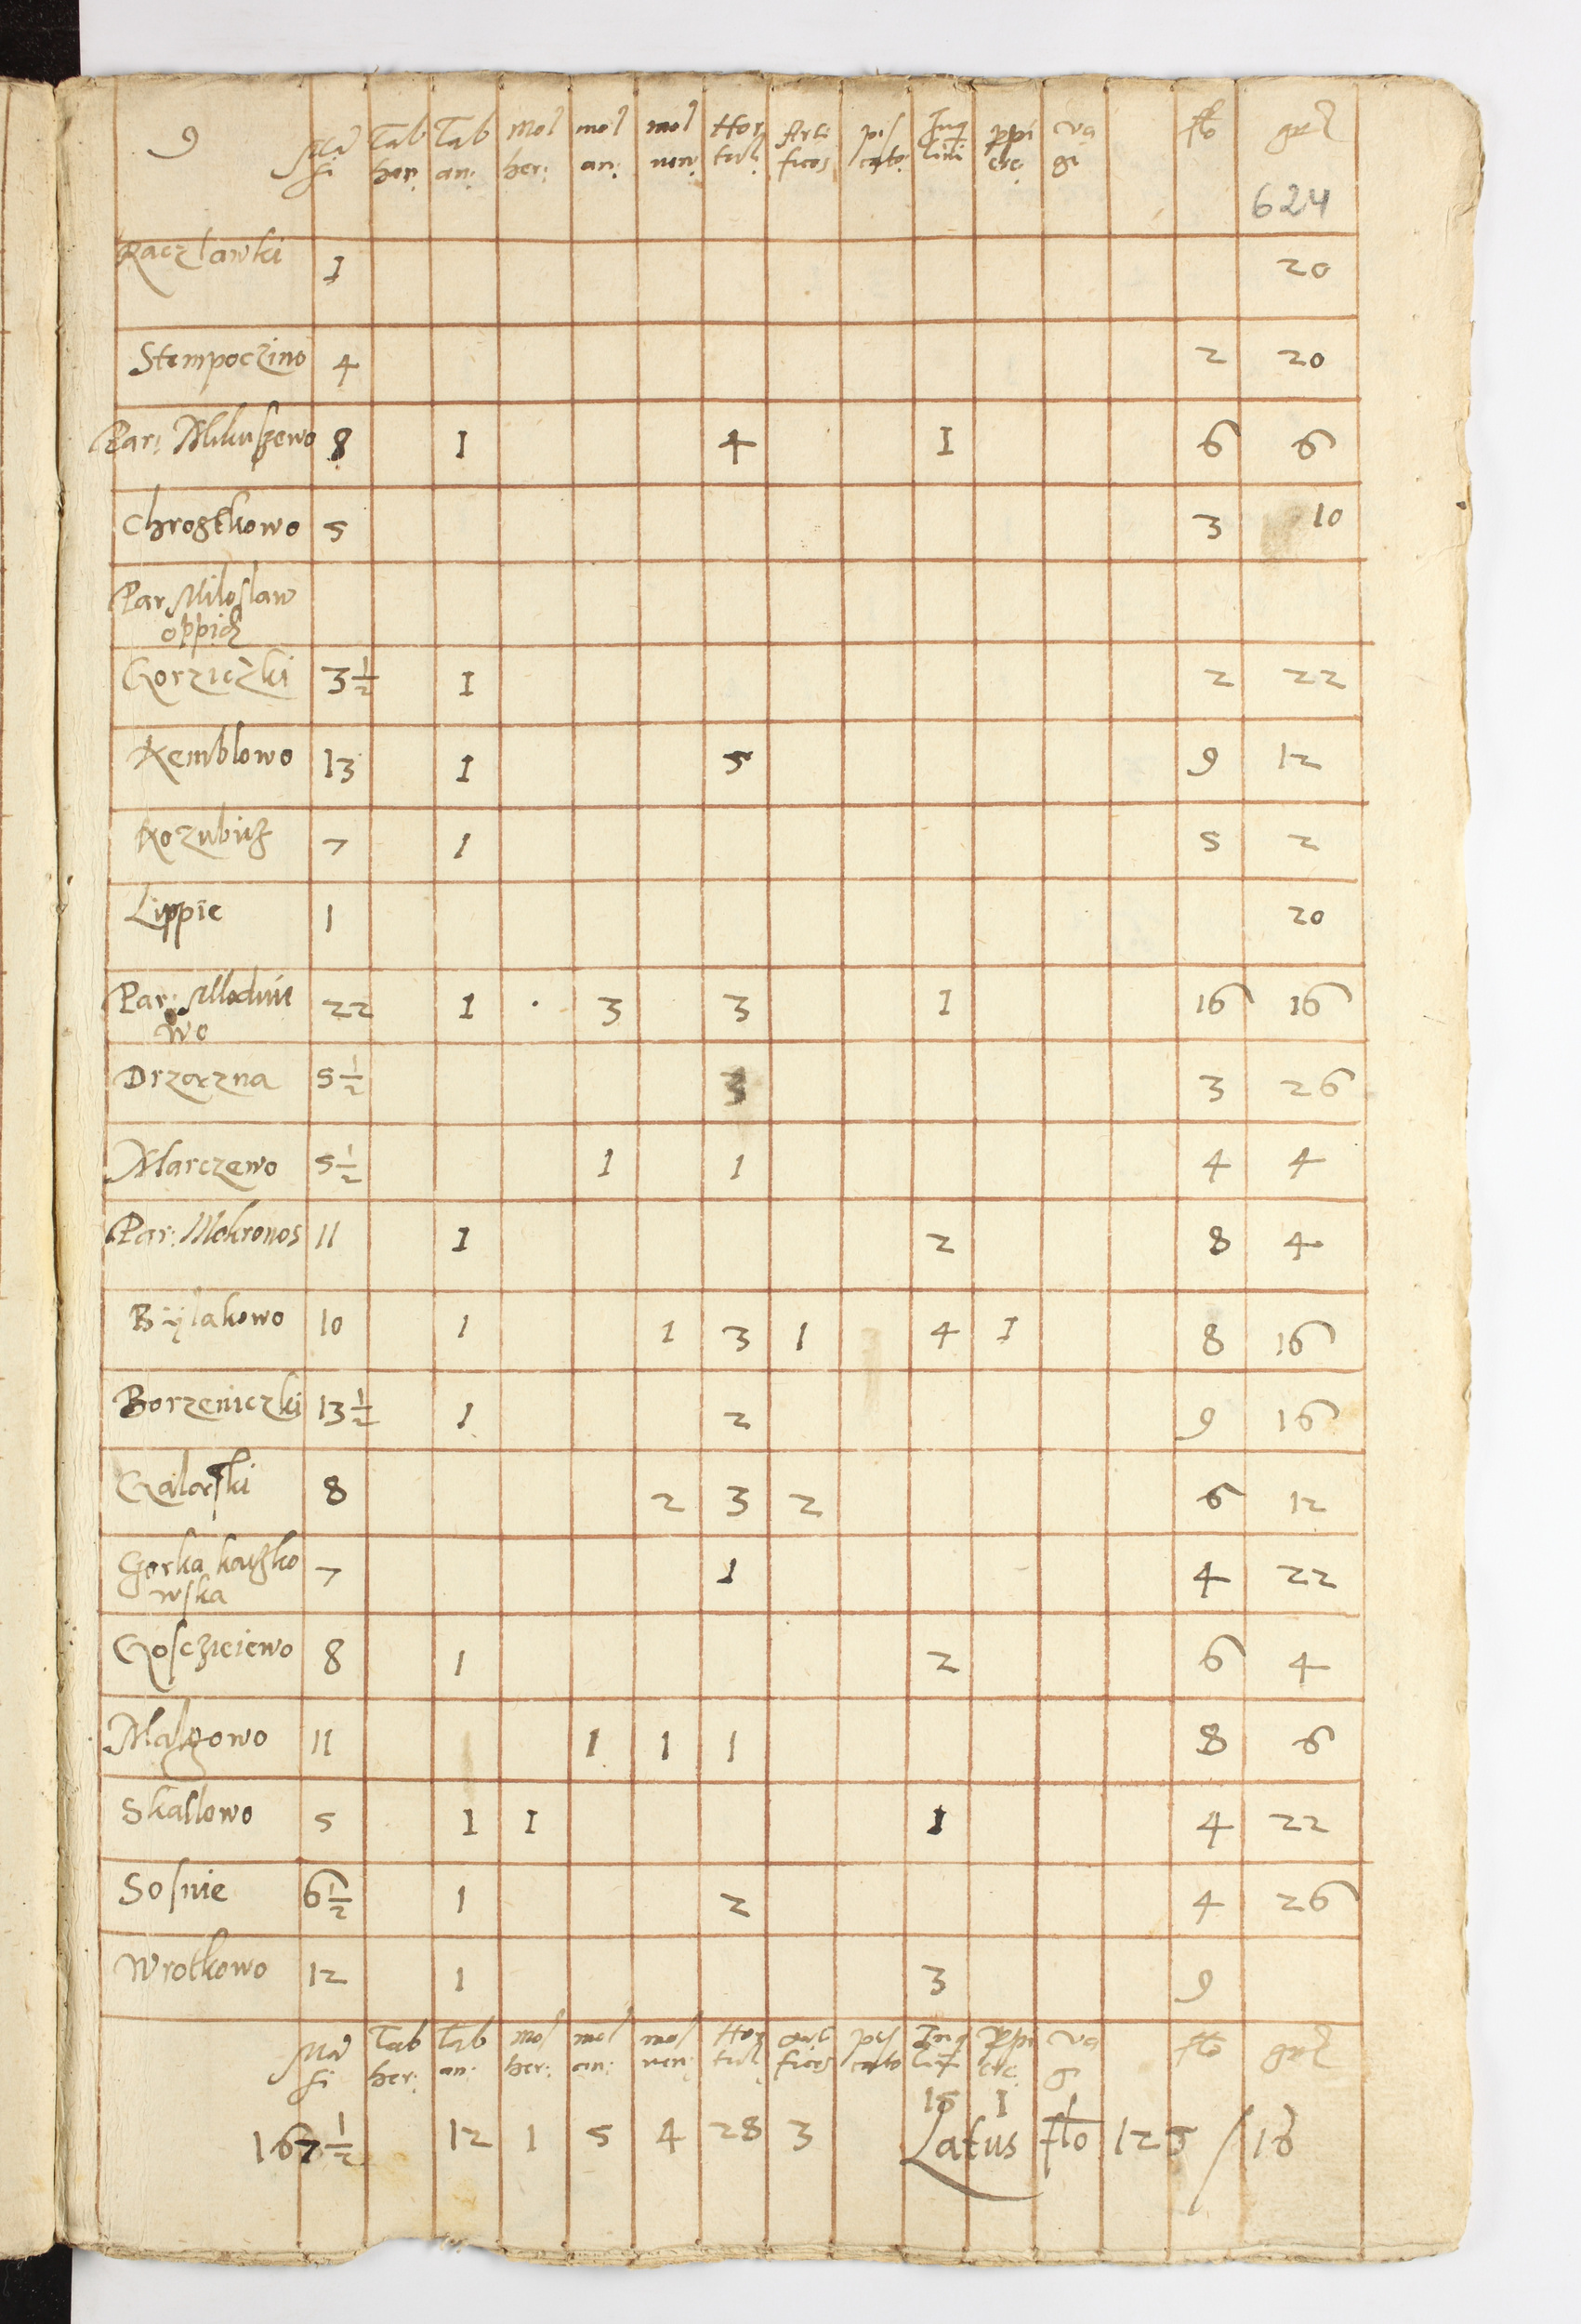 9 Ma Tab Tab Mol mol mol Hor Arti pis Inq ppi va flo gr
si her: an: her: an: ven: tul: fices cato: lini etc. gi
624
Raczlawki 1 20
Stempoczino 4 2 20
Par: Mikuszewo 8 1 4 1 6 6
Chrostkowo 5 3 10
Par Miloslaw
oppid
Gorziczki 3 1/2 1 2 22
Kemblowo 13 1 5 9 12
Kozubiic 7 1 5 2
Lippie 1 20
Par: Mlodziie 22 1 3 3 1 16 16
wo
Drzeczna 5 1/2 3 3 26
Marczewo 5 1/2 1 1 4 4
Par: Mokronos 11 1 2 8 4
Bÿlakowo 10 1 1 3 1 4 1 8 16
Borzeniczki 13 1/2 1 2 9 16
Galaski 8 2 3 2 6 12
Gorka kaczko 7 1 4 22
wska
Gosczieiewo 8 1 2 6 4
Malgowo 11 1 1 1 8 6
Skallowo 5 1 1 1 4 22
Sosnie 6 1/2 1 2 4 26
Wrotkowo 12 1 3 9
Ma Tab Tab mol mol mol Hor arti pis Inq ppi va flo gr
si her: an: her: an: ven: tul fices cato lin etc. g
15 1
167 1/2 12 1 5 4 28 3 Latus flo 125 / 18